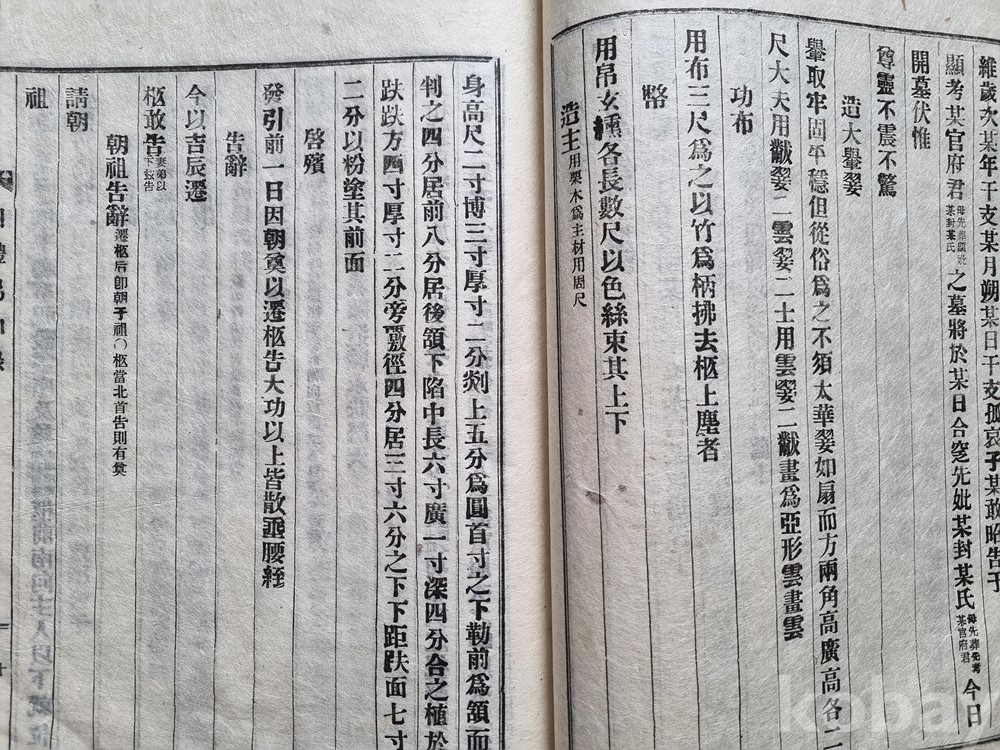 維歲次某年干支某月朔某日干支孤哀子某敢昭告于
顯考某官府君母先葬顯妣某封某氏之墓將於某日合窆先妣某封某氏母先葬先考某官府君今日
開墓伏惟
尊靈不震不驚
造大轝翣
轝取牢固平穩但從俗爲之不須太華翣如扇而方兩角高廣高各二
尺大夫用黻翣二雲翣二士用雲翣二黻畫爲亞形雲畫雲
功布
用布三尺爲之以竹爲柄拂去柩上塵者
幣
用帛玄纁各長數尺以色絲束其上下
造主用栗木爲主材用周尺
身高尺二寸博三寸厚寸二分剡上五分爲圓首寸之下勒前爲頷而
判之四分居前八分居後頷下陷中長六寸廣一寸深四分合之植於
趺趺方四寸厚寸二分旁竅徑四分居三寸六分之下下距趺面七寸
二分以粉塗其前面
啓殯
發引前一日因朝奠以遷柩告大功以上皆散垂腰絰
告辭
今以吉辰遷
柩敢告妻弟以下玆告
朝祖告辭遷柩后卽朝于祖○柩當北首告則有奠
請朝
祖
kobay